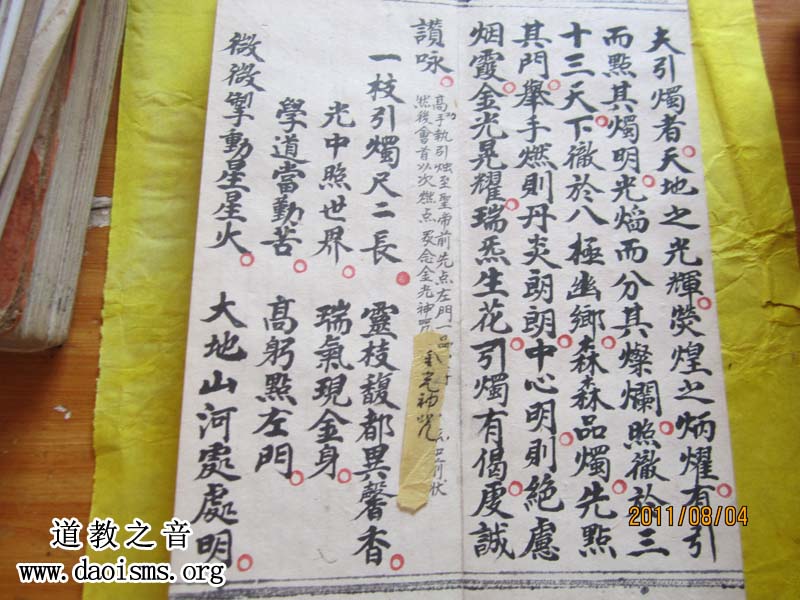 夫引燭者。天地之光輝。熒煌之炳耀。有引
而點其燭明。光熖而分其燦爛。照徹於三
十三天。下徹於八極幽鄉。森森品燭先點
其門。舉手燃則丹炎朗朗。中心明則絶慮
烟霞。金光晃耀。瑞炁生花。引燭有偈。虔誠
讚咏。
高手執引烛至聖帝前先点左門一品
然後會首以次燃点 眾念金光神咒
金光神咒
一枝引燭尺二長。 靈枝馥都異馨香。
光中照世界。 瑞氣現金身。
學道當勤苦。 高躬點左門。
微微擧動星星火。 大地山河處處明。
2011/08/04
道教之音
www.daoisms.org